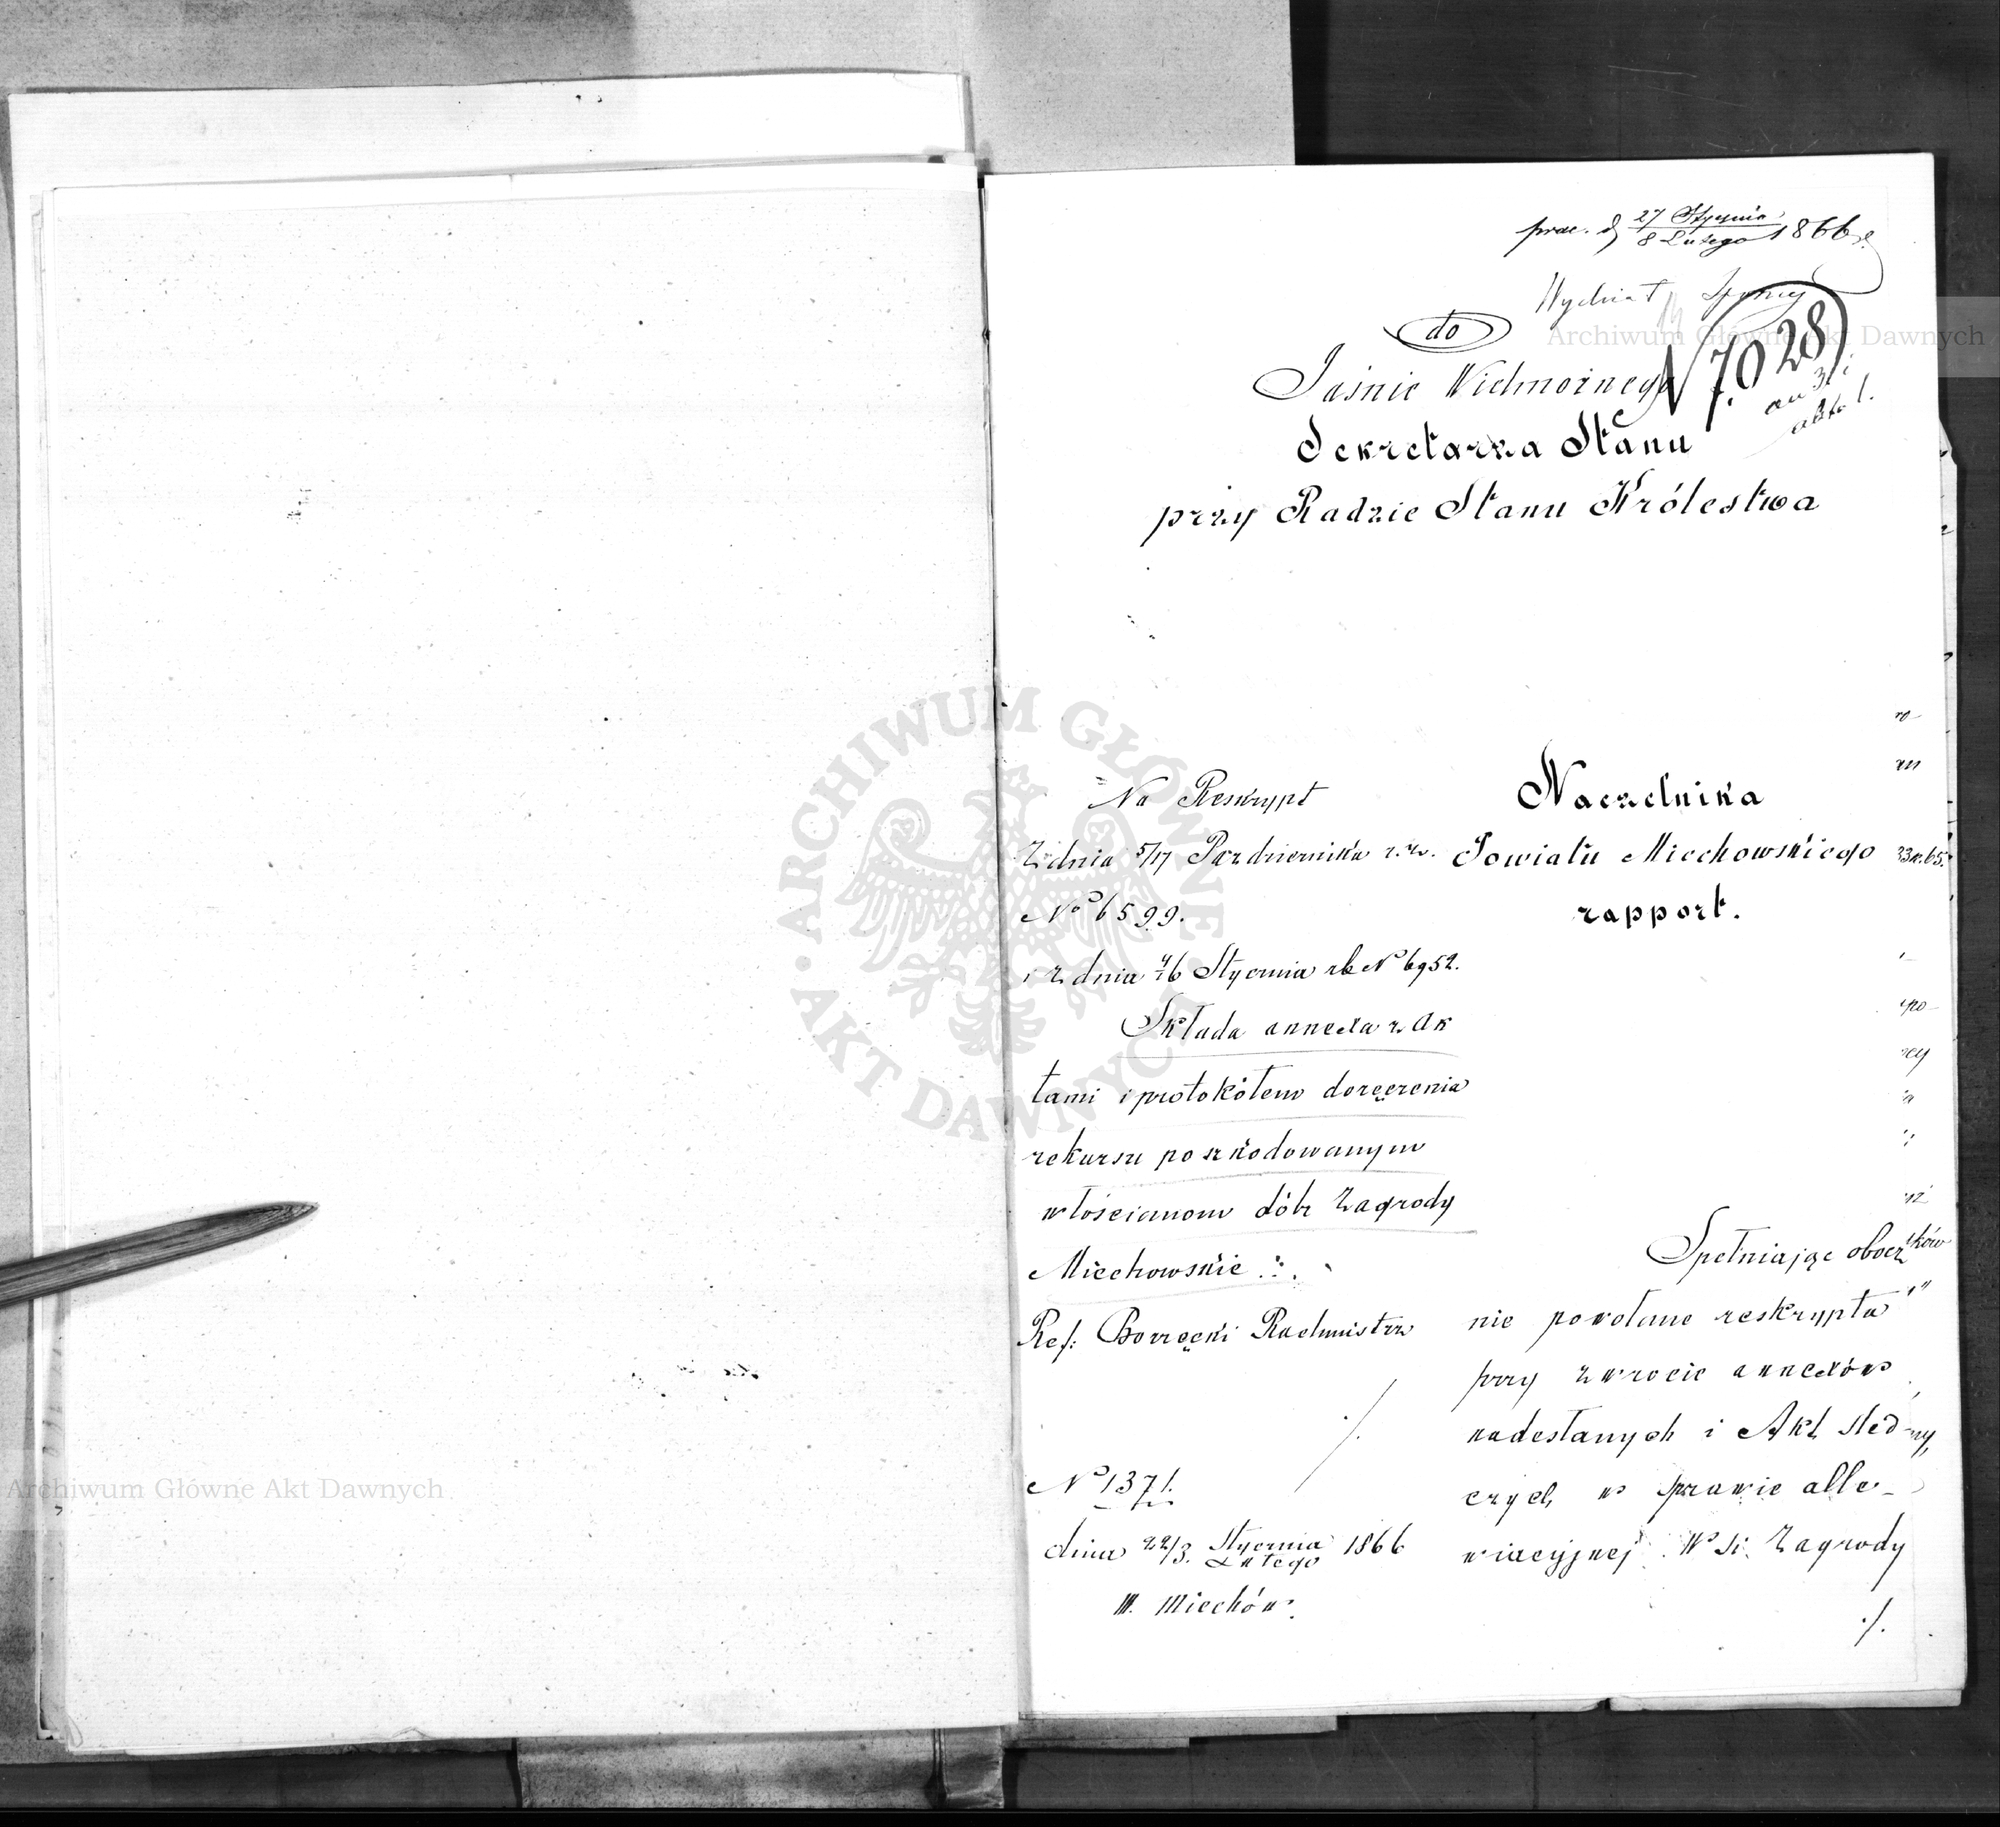 prae. d 27 Stycznia / 8 Lutego 1866 r.
Wydział Sporny
do
N 7.028
Jaśnie Wielmożnego
Sekretarza Stanu
przy Radzie Stanu Królestwa
Na Reskrypt
Z dnia 5/17 Pazdziernika r. z.
No 6599.
i z dnia 4/16 Stycznia rb N 6952.
Składa annexa z Ak
tami i protokółem doręczenia
rekursu poszkodowanym
włościanom dóbr Zagrody
Miechowskie
Ref: Borzęcki Rachmistrz
No 1371.
dnia 22/3. Stycznia / Lutego 1866
m. Miechów.
Naczelnika
Powiatu Miechowskiego
rapport.
Spełniając obocz
nie powołane reskrypta
przy zwrocie annexów
nadesłanych i Akt śled
czych w sprawie alle-
wiacyjnej Wsi Zagrody
./.
Archiwum Główne Akt Dawnych
ARCHIWUM GŁÓWNE
AKT DAWNYCH
Archiwum Główne Akt Dawnych